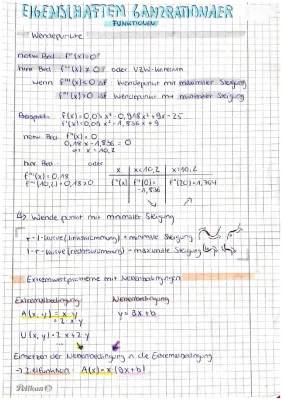 EIGENSCHAFTEN GANZRATIONALER
FUNKTIONEN
Wendepunkte:
notw. Bed. f''(x)=0
hinr. Bed. f'''(x) ≠ 0 oder VZW-Kriterium
wenn f'''(x)>0 ist Wendepunkt mit minimaler Steigung
f'''(x)<0 ist Wendepunkt mit maximaler Steigung
Beispiel: f(x)=0,03x³-0,918x²+9x-25
notw. Bed. f''(x)=0
0,18x-1,836=0
x=10,2
hinr. Bed. oder
f'''(x)=0,18
f'''(10,2)=0,18>0
x x<10,2 x>10,2
f''(x) f''(0)= f''(20)=1,764
-1,836
↳ Wendepunkt mit minimaler Steigung
r-l-Kurve = minimale Steigung
l-r-Kurve = maximale Steigung
Extremwertprobleme mit Nebenbedingungen
Extremalbedingung Nebenbedingung
A(x,y)=x·y y=3x+b
U(x,y)=2x+2y
Einsetzen der Nebenbedingung in die Extremalbedingung
→ Zielfunktion: A(x)=x·(3x+b)
Pelikan